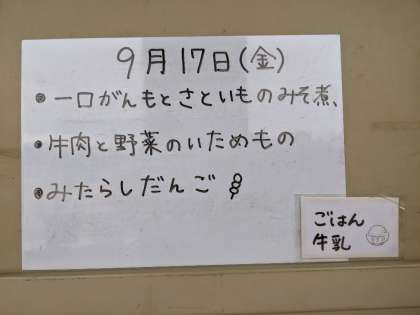 9月17日(金)
• 一口がんもとさといものみそ煮、
• 牛肉と野菜のいためもの
• みたらしだんご
ごはん
牛乳